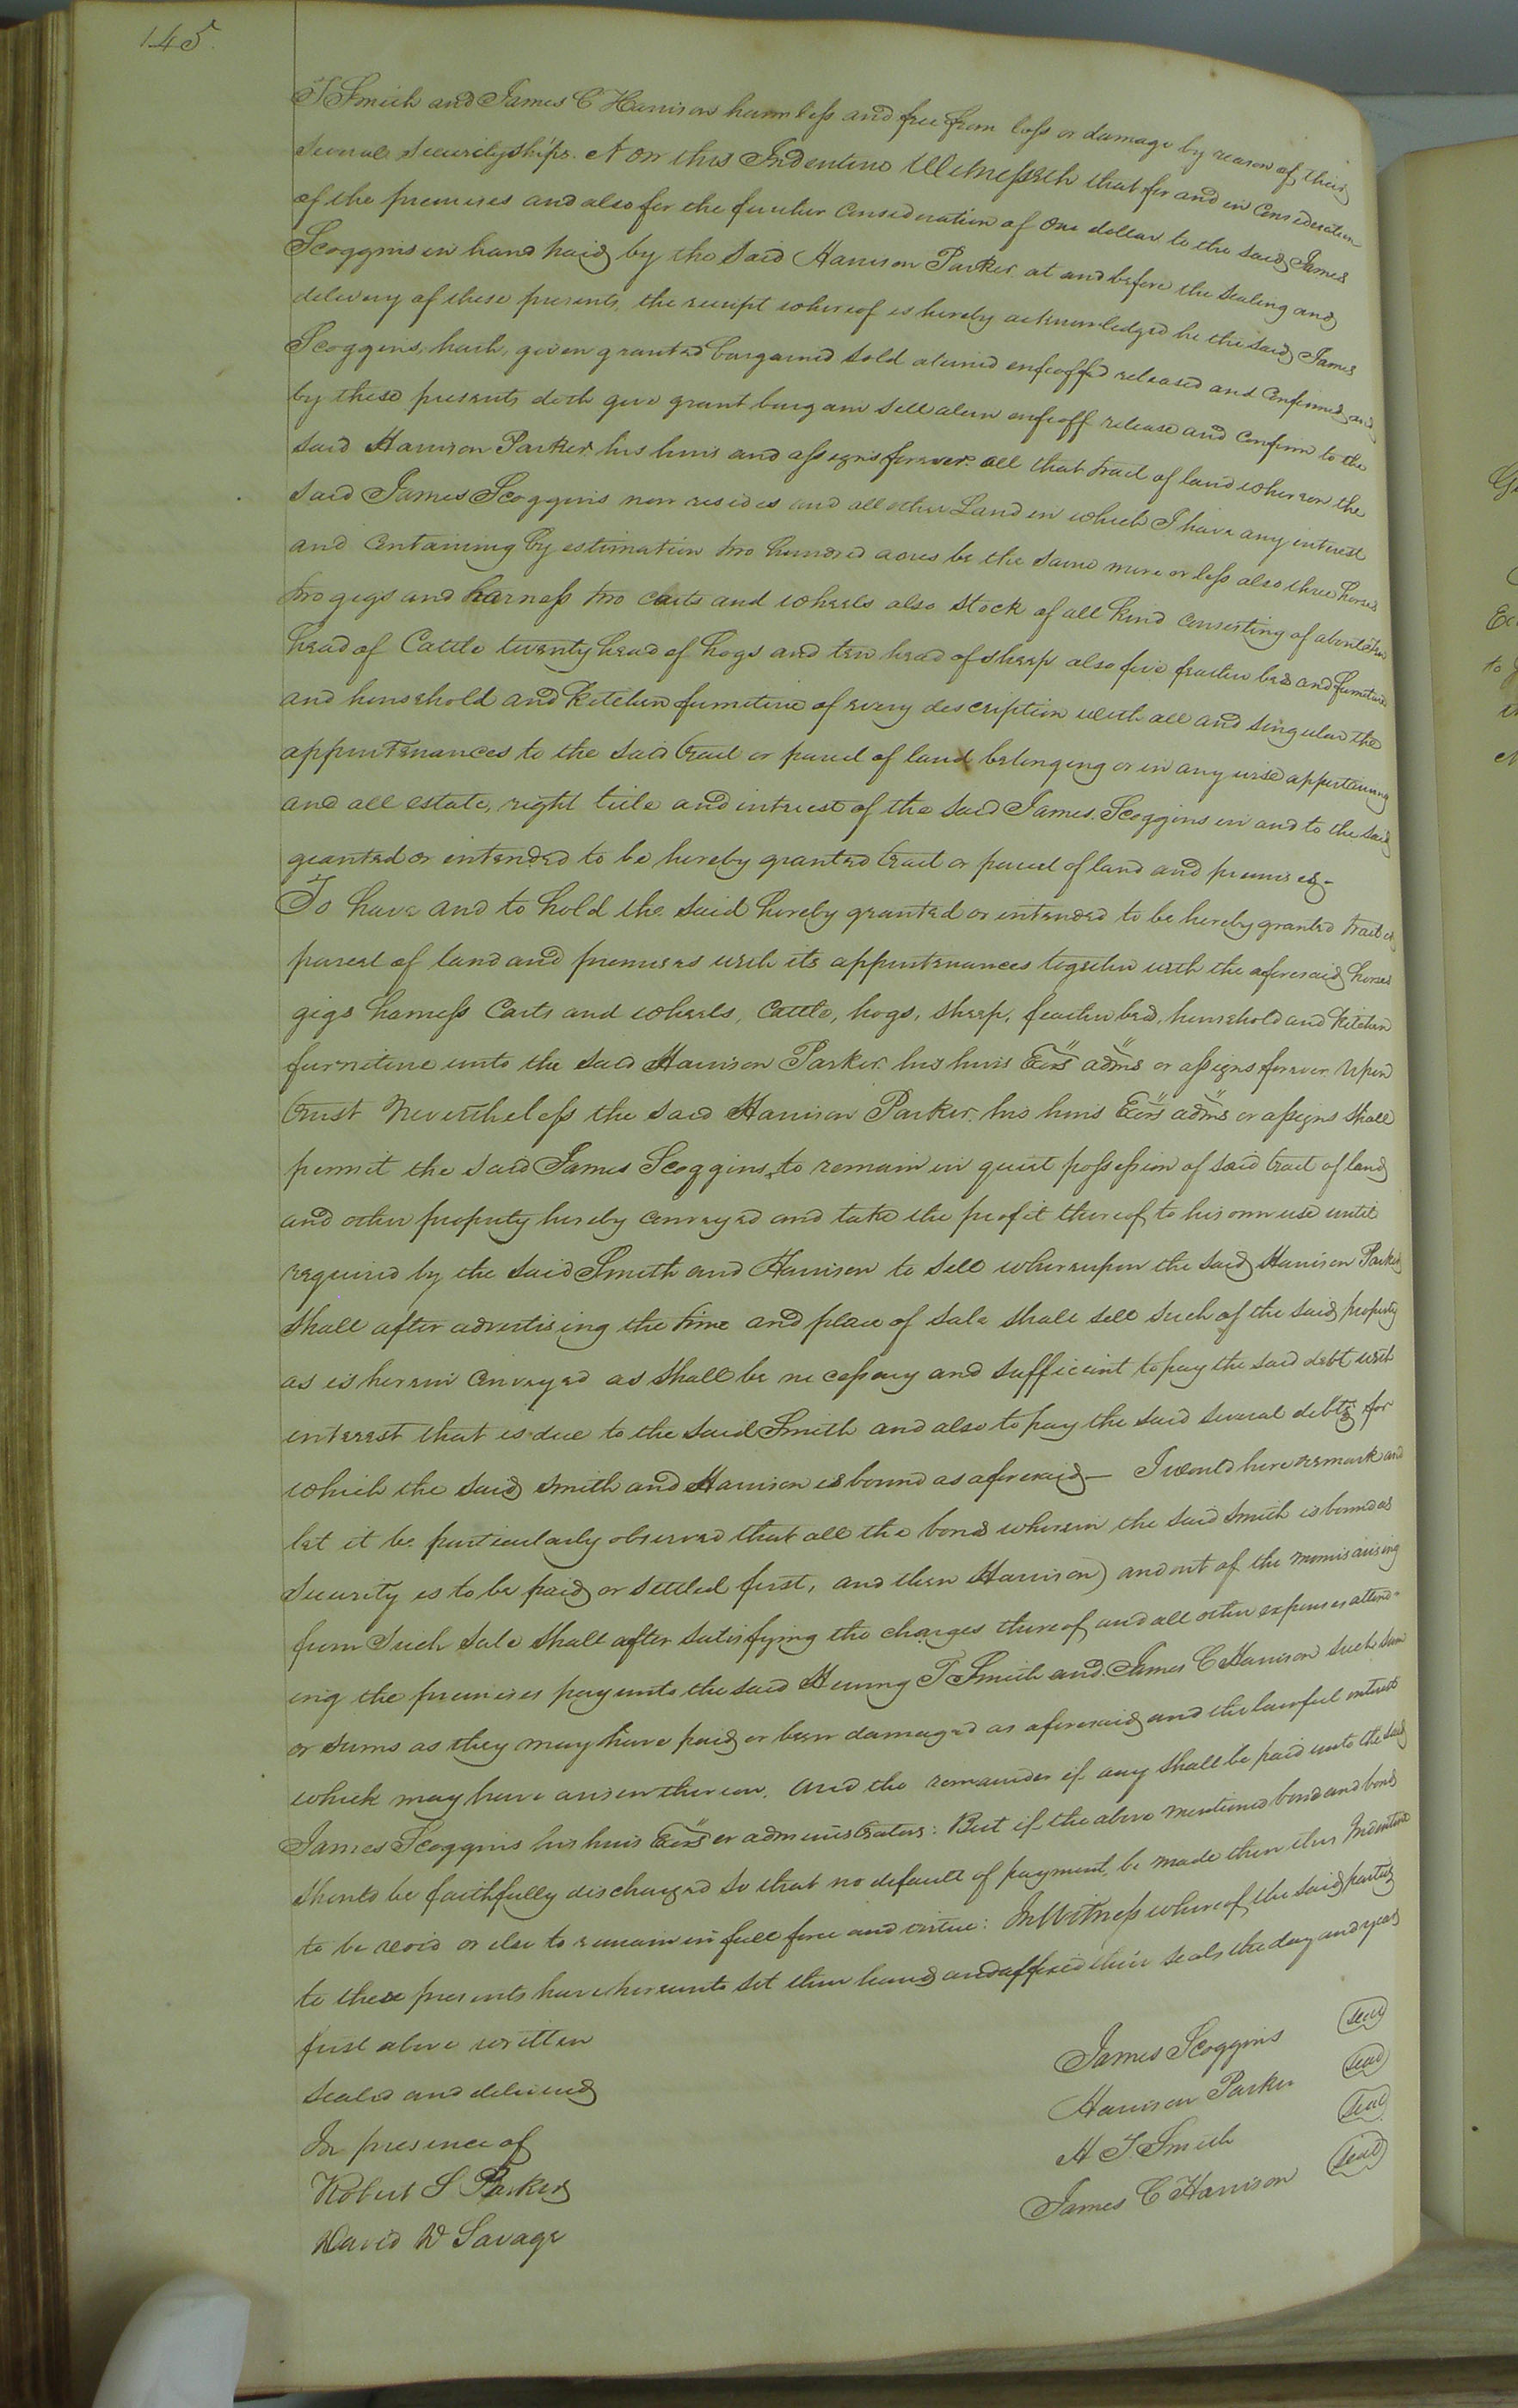 145.
T Smith and James C Harrison harmless and free from loss or damage by reason of their
several securityships. Now this Indenture Witnesseth that for and in consideration
of the premises and also for the further consideration of one dollar to the said James
Scoggins in hand paid by the said Harrison Parker at and before the sealing and
delivery of these presents, the receipt whereof is hereby acknowledged he the said James
Scoggins, hath, given granted bargained sold aliened enfeoffed released and confirmed and
by these presents doth give grant bargain sell alien enfeoff release and confirm to the
said Harrison Parker his heirs and assigns forever. all that tract of land whereon the
said James Scoggins now resides and all other Land in which I have any interest
and containing by estimation two hundred acres be the same more or less also three horses
two gigs and harness two carts and wheels also stock of all kind consisting of about ten
head of Cattle twenty head of hogs and ten head of sheep also five feather beds and furniture
and household and Kitchen furniture of every description with all and singular the
appurtenances to the said tract or parcel of land belonging or in any wise appertaining
and all estate, right title and interest of the said James Scoggins in and to the said
granted or intended to be hereby granted tract or parcel of land and premises -
To have and to hold the said hereby granted or intended to be hereby granted tract or
parcel of land and premises with its appurtenances together with the aforesaid horses
gigs harness Carts and wheels, Cattle, hogs, sheep, feather bed, household and Kitchen
furniture unto the said Harrison Parker his heirs Exors adms or assigns forever upon
trust Nevertheless the said Harrison Parker his heirs Exors adms or assigns shall
permit the said James Scoggins, to remain in quiet possession of said tract of land
and other property hereby conveyed and take the profit thereof to his own use until
required by the said Smith and Harrison to sell whereupon the said Harrison Parker
shall after advertising the time and place of sale shall sell such of the said property
as is herein conveyed as shall be necessary and sufficient to pay the said debt with
interest that is due to the said Smith and also to pay the said several debts for
which the said Smith and Harrison is bound as aforesaid - I would here remark and
let it be particularly observed that all the bonds wherein the said Smith is bound as
security is to be paid or settled first, and then Harrison) and out of the monies arising
from such sale shall after satisfying the charges thereof and all other expenses attend-
ing the premises pay unto the said Henry T Smith and James C Harrison such sum
or sums as they may have paid or been damaged as aforesaid and the lawful interest
which may have arisen thereon. And the remainder if any shall be paid unto the said
James Scoggins his heirs Exors or administrators: But if the above mentioned bond and bonds
should be faithfully discharged so that no default of payment, be made then this Indenture
to be void or else to remain in full force and virtue: In Witness whereof the said parties
to these presents have hereunto set their hands and affixed their seals the day and year
first above written
sealed and delivered
In presence of
Robert S Parker
David W Savage
James Scoggins seal
Harrison Parker seal
H T Smith seal
James C Harrison seal